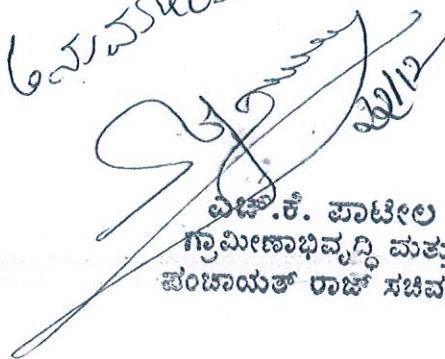 ಎಚ್.ಕೆ. ಪಾಟೀಲ
ಗ್ರಾಮೀಣಾಭಿವೃದ್ಧಿ ಮತ್ತು
ಪಂಚಾಯತ್ ರಾಜ್ ಸಚಿವ